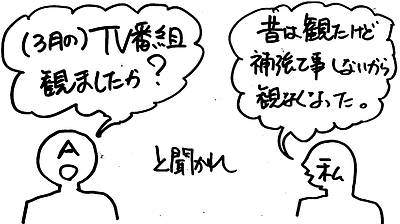 (3月の)TV番組
観ましたか?
A
と聞かれ
昔は観たけど
補張て事しないから
観なくなった。
私